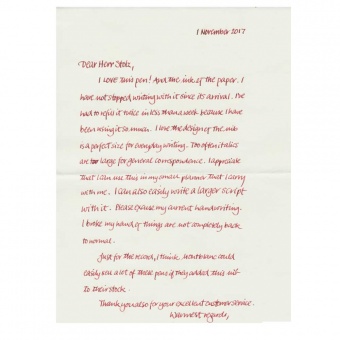 1 November 2017
Dear Herr Stolz,
I love this pen! And the ink of the paper. I
have not stopped writing with it since its arrival. I've
had to refill it twice in less than a week because I have
been using it so much. I love the design of the nib
is a perfect size for everyday writing. Too often italics
are too large for general correspondence. I appreciate
that I can use this in my small planner that I carry
with me. I can also easily write a larger script
with it. Please excuse my current handwriting.
I broke my hand & things are not completely back
to normal.
Just for the record, I think Montblanc could
easily sell a lot of these pens if they added this nib
to their stock.
Thank you also for your excellent customer service.
Warmest regards,